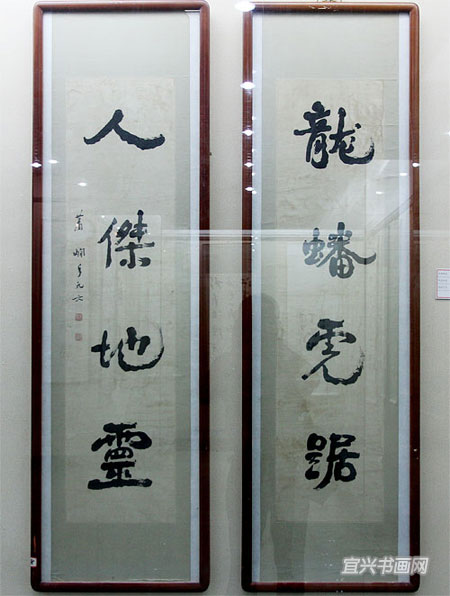 龍蟠虎踞
人傑地靈
蕭嫻年九六
宜兴书画网